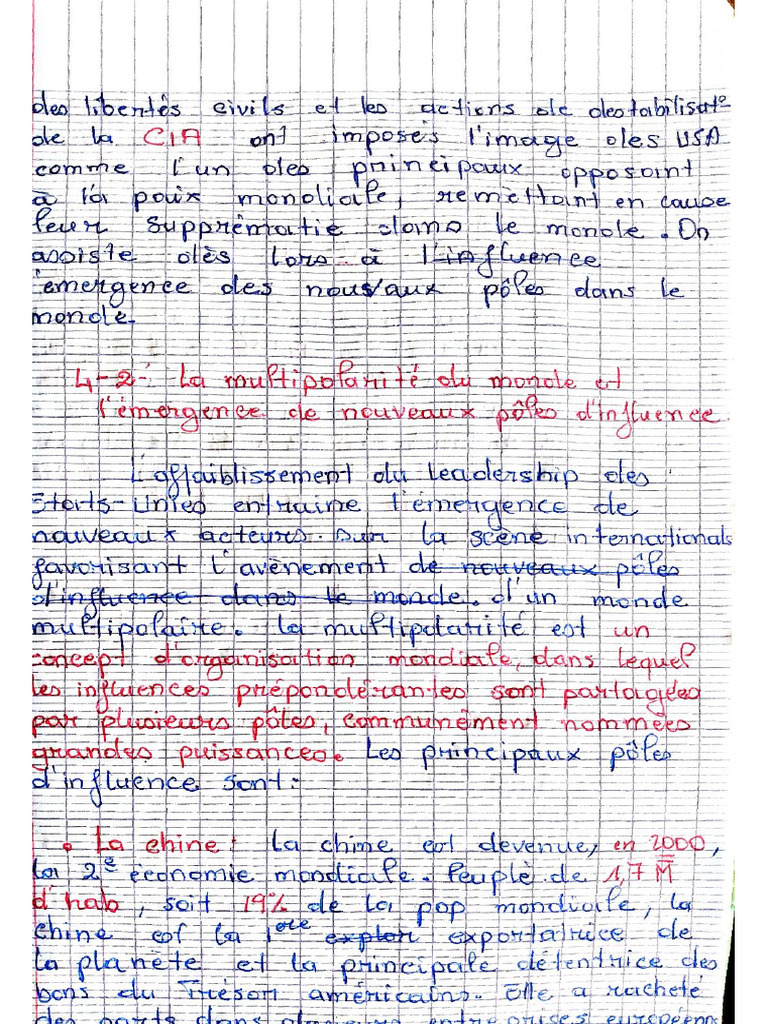 des libertés civils et les actions de destabilisat°
de la CIA ont imposés l'image des USA
comme l'un des principaux opposant
à la paix mondiale, remettant en cause
leur supprématie dans le monde. On
assiste dès lors à l'influence
émergence des nouveaux pôles dans le
monde.
4-2-: La multipolarité du monde et
l'émergence de nouveaux pôles d'influence.
L'affaiblissement du leadership des
Etats-Unies entraine l'émergence de
nouveaux acteurs sur la scène internationals
favorisant l'avènement de nouveaux pôles
d'influence dans le monde. d'un monde
multipolaire. La multipolarité est un
concept d'organisation mondiale, dans lequel
les influences prépondérantes sont partagées
par plusieurs pôles, communément nommées
grandes puissances. Les principaux pôles
d'influence sont:
• La chine: La chine est devenue, en 2000,
la 2e économie mondiale. Peuplé de 1,7 M
d'hab, soit 19% de la pop mondiale, la
chine est la 1ere explor exportatrice de
la planète et la principale détentrice des
bons du Trésor américains. Elle a racheté
des parts dans entreprises européenn